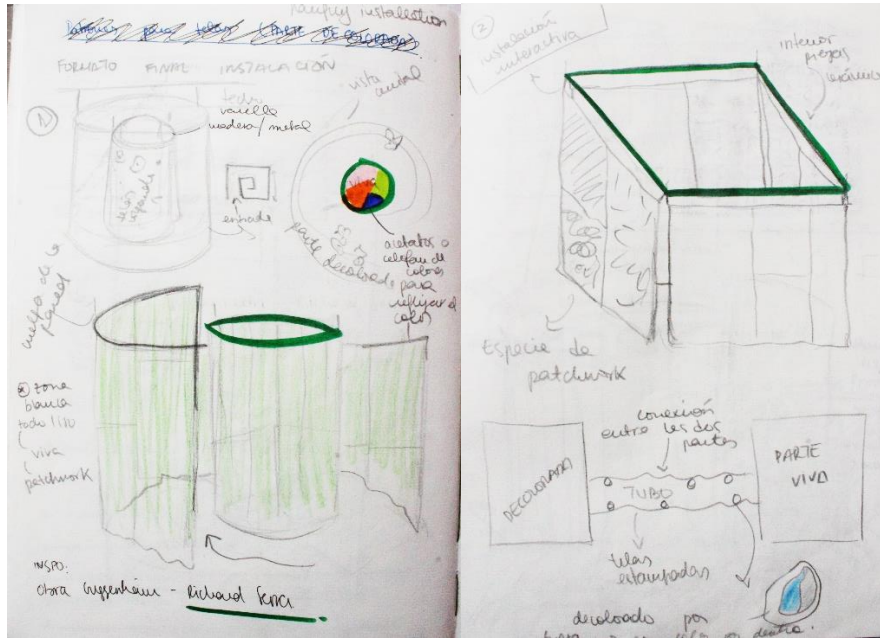 installation
FORMATO FINAL INSTALACIÓN
①
techo
varilla
madera/metal
vista
entrada
parte decolorada
acetatos o
celofan de
colores
para
reflejar el
color
cuelga de la
pared
zona
blanca
todo liso
viva
patchwork
INSPO:
Obra Guggenheim - Richard Serra
②
instalación
interactiva
interior
piezas
Especie de
patchwork
conexión
entre las dos
partes
DECOLORADA
TUBO
PARTE
VIVA
telas
estampadas
decolorado por
dentro.